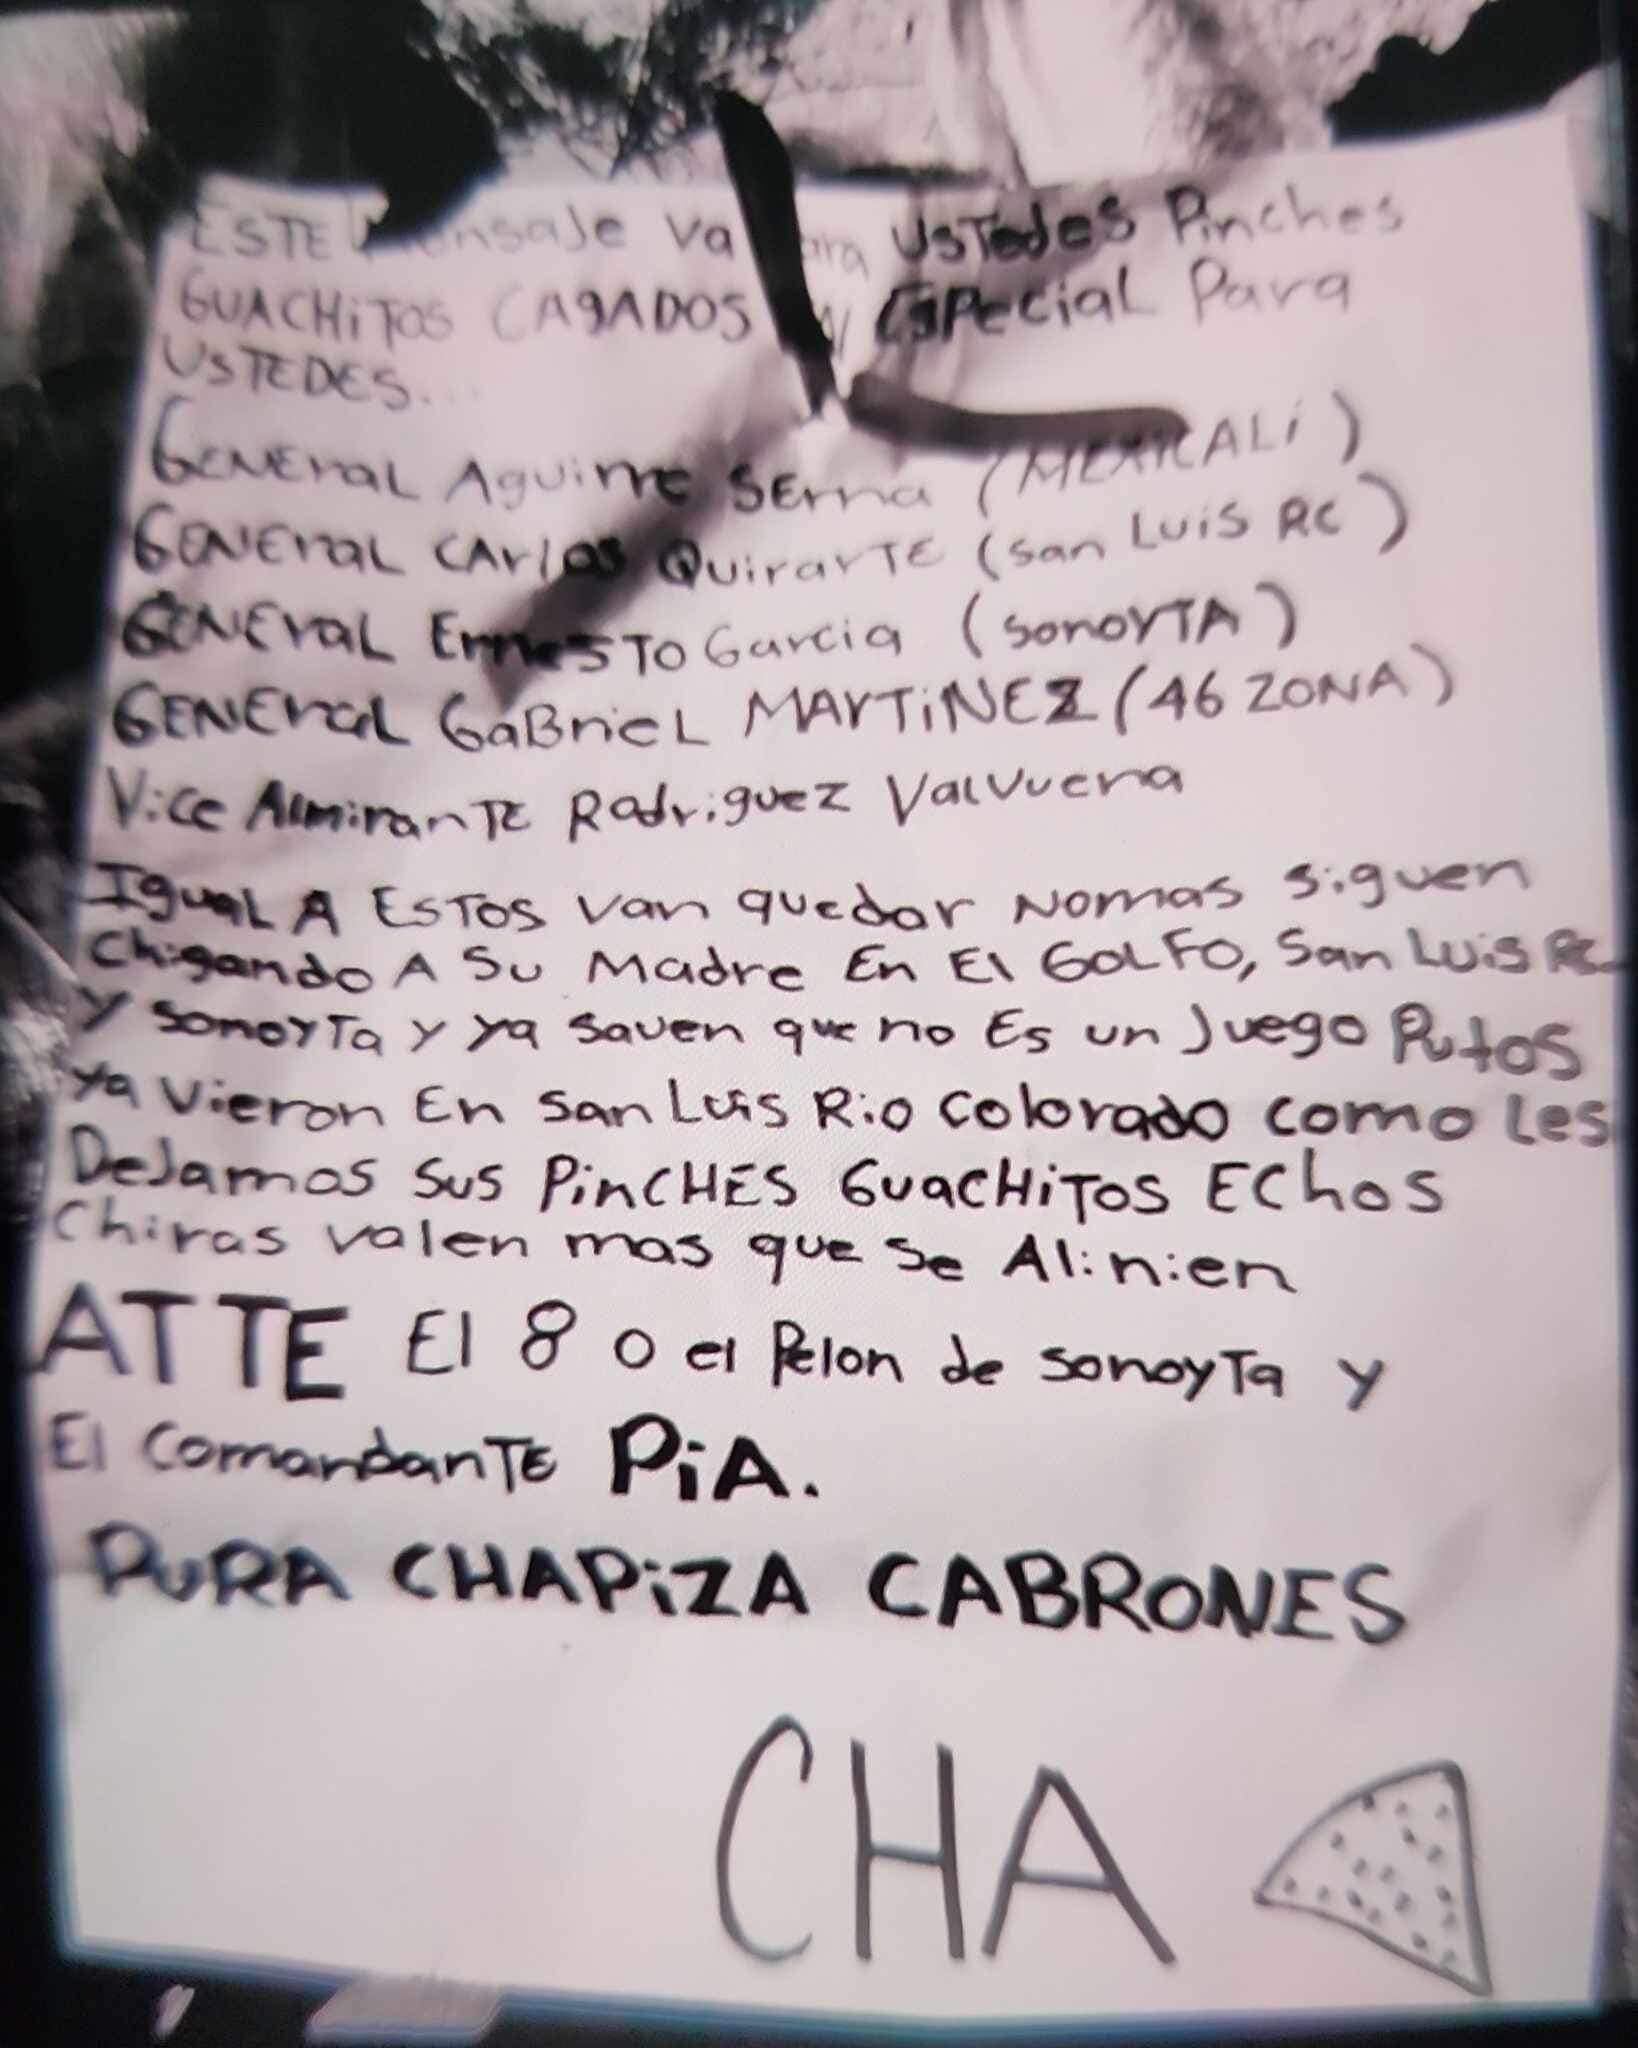 ESTE Mensaje va para USTedes Pinches
GUACHiTOS CAGADOS EN ESPECiaL Para
USTEDES...
GENEraL Aguirre SErna (MEXiCALi)
GENEraL CArlos QuirarTE (San Luis RC)
GENEraL ErnesTO Garcia (sonoyTA)
GENEraL GaBrieL MARTiNEZ (46 ZONA)
Vice AlmiranTE Rodriguez Valvuena
IguaL A ESTOS van quedar Nomas siguen
Chigando A Su Madre En El GOLFO, San Luis RC
Y sonoyTa y ya saven que no Es un Juego Putos
ya vieron En San Luis Rio Colorado como les
DeJamos sus PinCHES GuaCHiTOS EChos
Chiras valen mas que se Alinien
ATTE El 8 o el Pelon de sonoyTa y
El ComandanTE PiA.
PURA CHAPiZA CABRONES
CHA